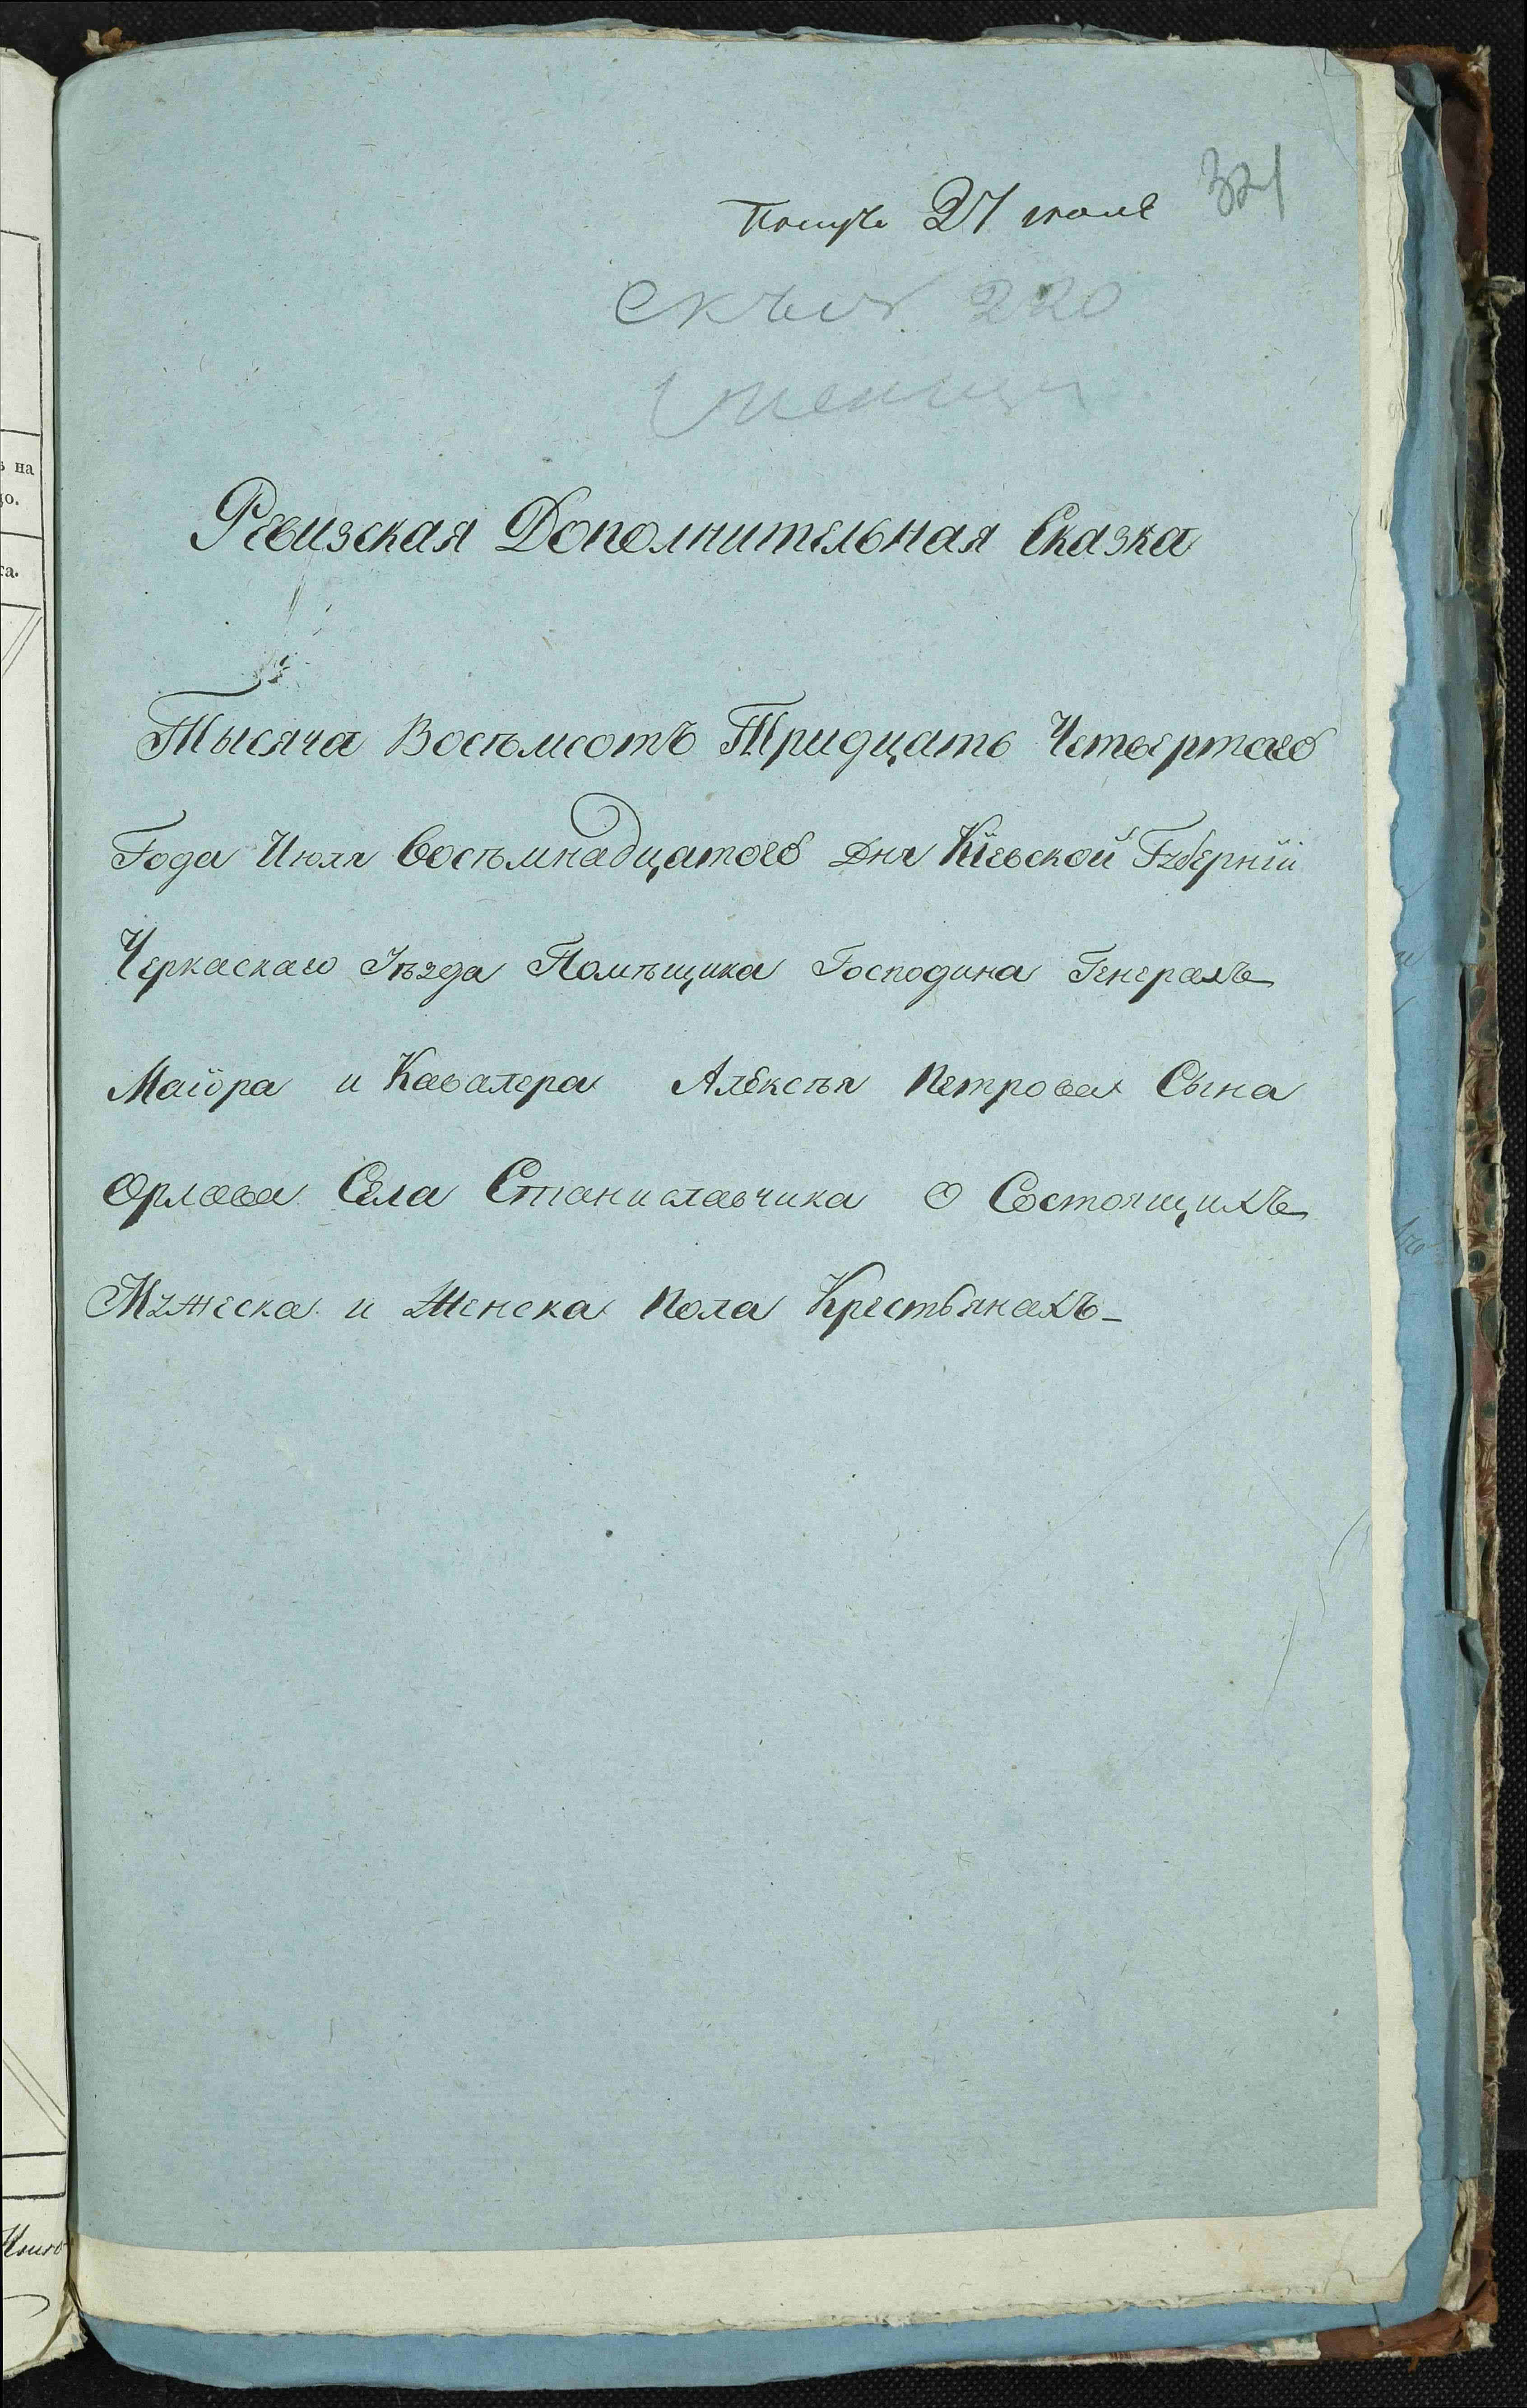 321
27 июля
220
Ревизская Дополнительная Сказка
Тысяча Восѣмсотъ Тридцать Четвертого
Года Июля восѣмнадцатого Дня Кіевской Губерніи
Черкаскаго Уѣзда Помѣщика Господина Генералъ
Маіора и Кавалера Алексѣя Петрова Сына
Орлова Села Станиславчика О Состоящихъ
Мужеска и Женска Пола Крестьянахъ -
на
го.
та.